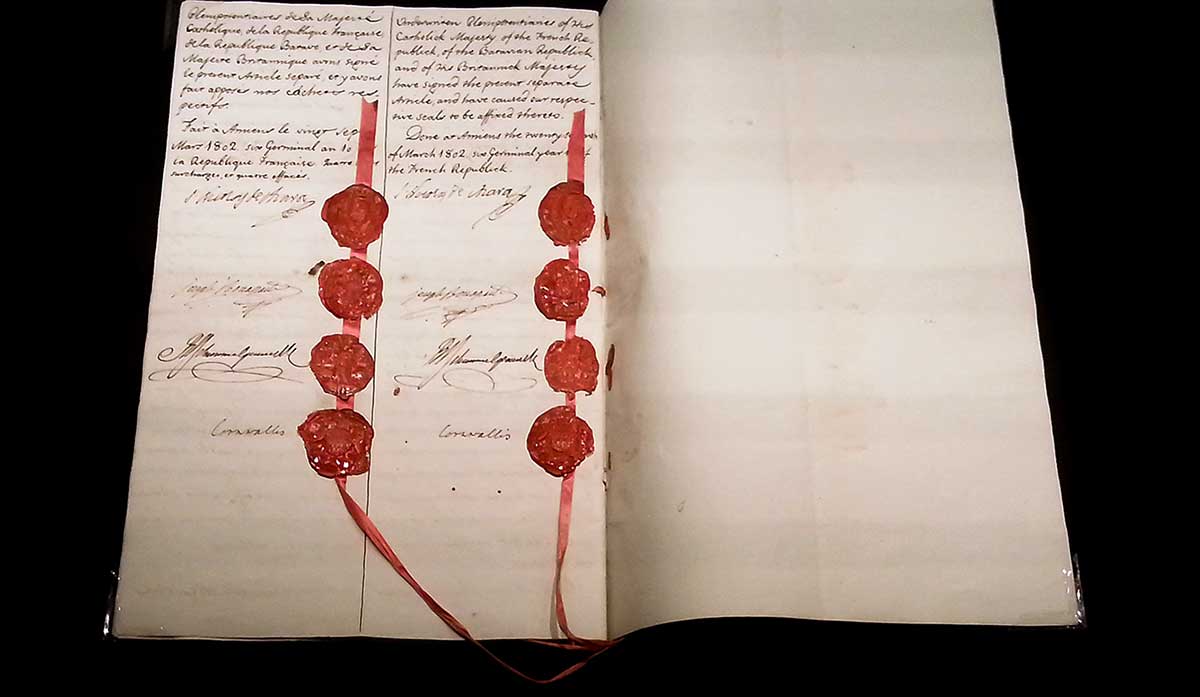 Plenipotentiaires de Sa Majesté
Catholique, de la Republique Française
de la Republique Batave, et de Sa
Majesté Britannique avons signé
le present Article separé, et y avons
fait apposer nos cachets res=
pectifs.
Fait à Amiens le vingt sep
Mars 1802. six Germinal an 10
la Republique Française
surcharges, et quatre
Underwritten Plenipotentiaries of His
Catholick Majesty, of the French Re=
publick, of the Batavian Republick,
and of His Britannick Majesty
have signed the present separate
Article, and have caused our respec=
tive seals to be affixed thereto.
Done at Amiens the twenty
of March 1802. six Germinal year
the French Republick.
Cornwallis
Cornwallis